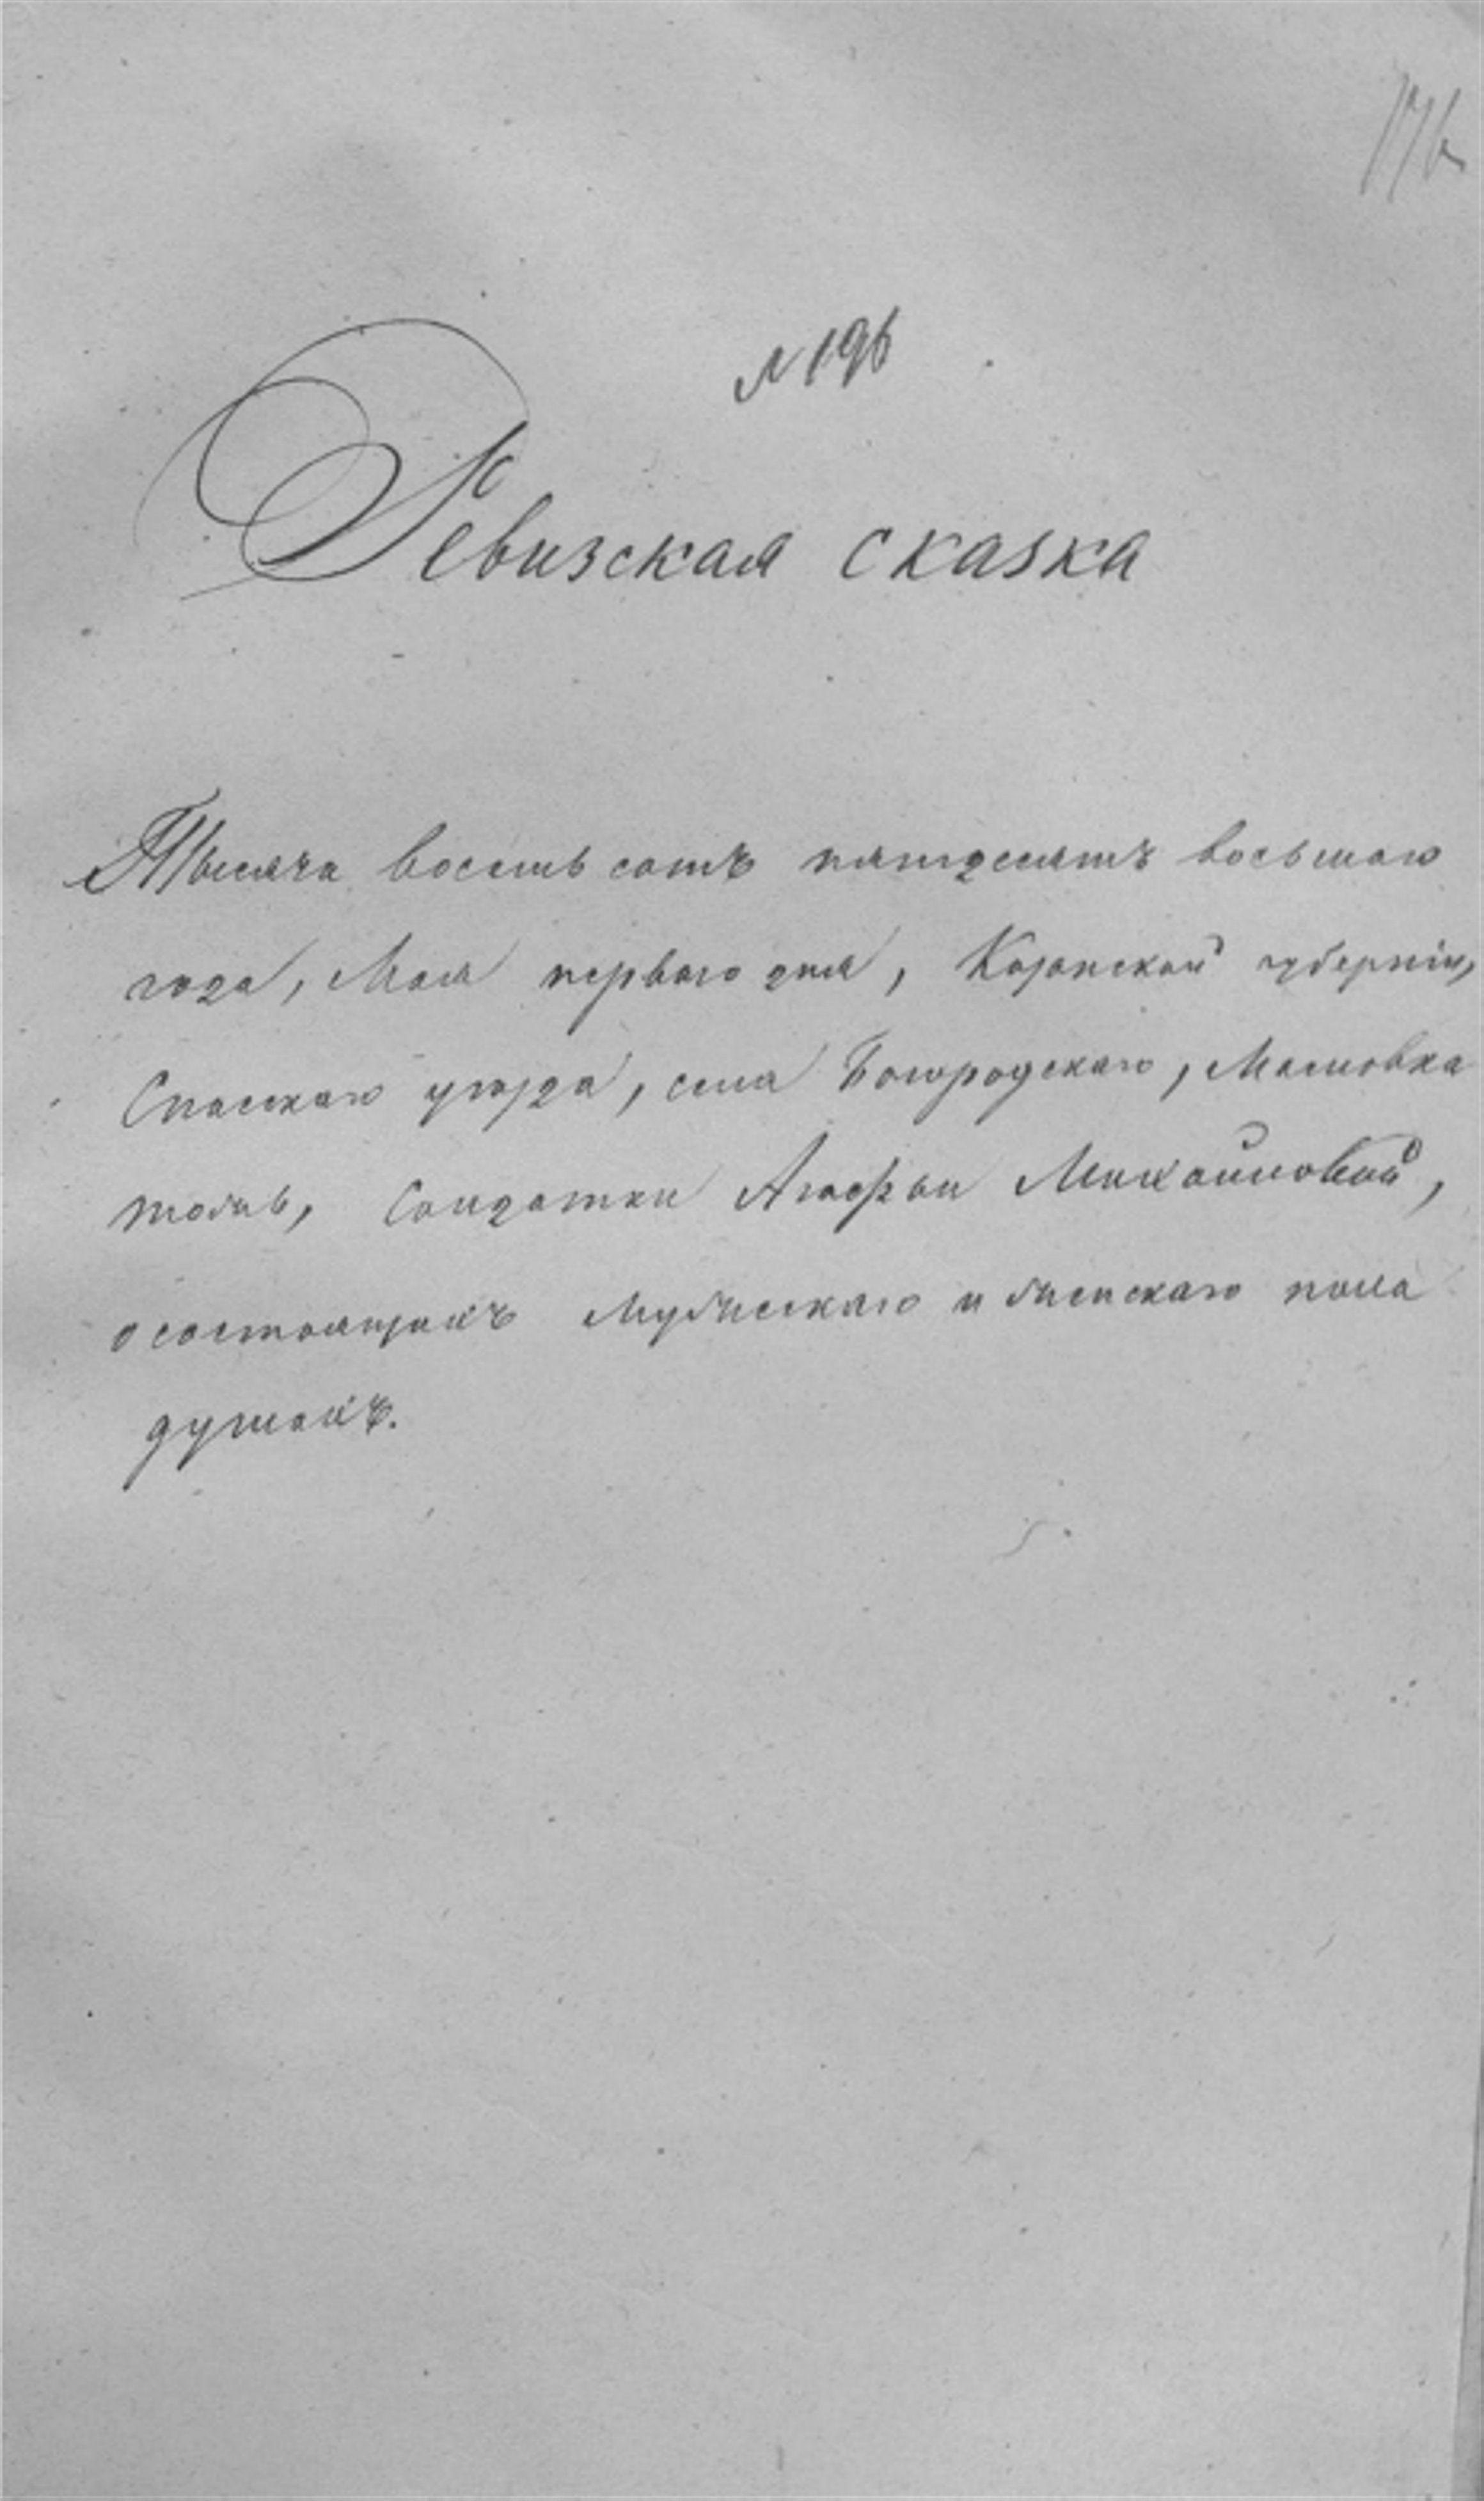 176
№ 196
Ревизская сказка
Тысяча восемь сотъ пятдесятъ восьмаго
года, Мая перваго дня, Казанской губерніи,
Спасскаго уезда, села Богородскаго, Масловка
тожъ, Солдатки Агафьи Михайловой,
о состоящихъ Мужескаго и женскаго пола
душахъ.